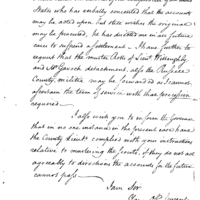 States who has verbally consented that the accounts
may be acted upon but still wishes the original
may be procured, he has directed me in all future
cases to suspend a settlement. I have further to
request that the muster Rolls of Lieut Willoughby
and detachment also the
County, militia may be forwarded as it cannot
ascertain the term of service with that
required
I also wish you to inform the Governor
that in no one instance in the present case have
the County Lieuts complied with your instructions
relative to mustering the Scouts, if they do not
agreeably to directions the accounts in the future
cannot pass.
I am Sir